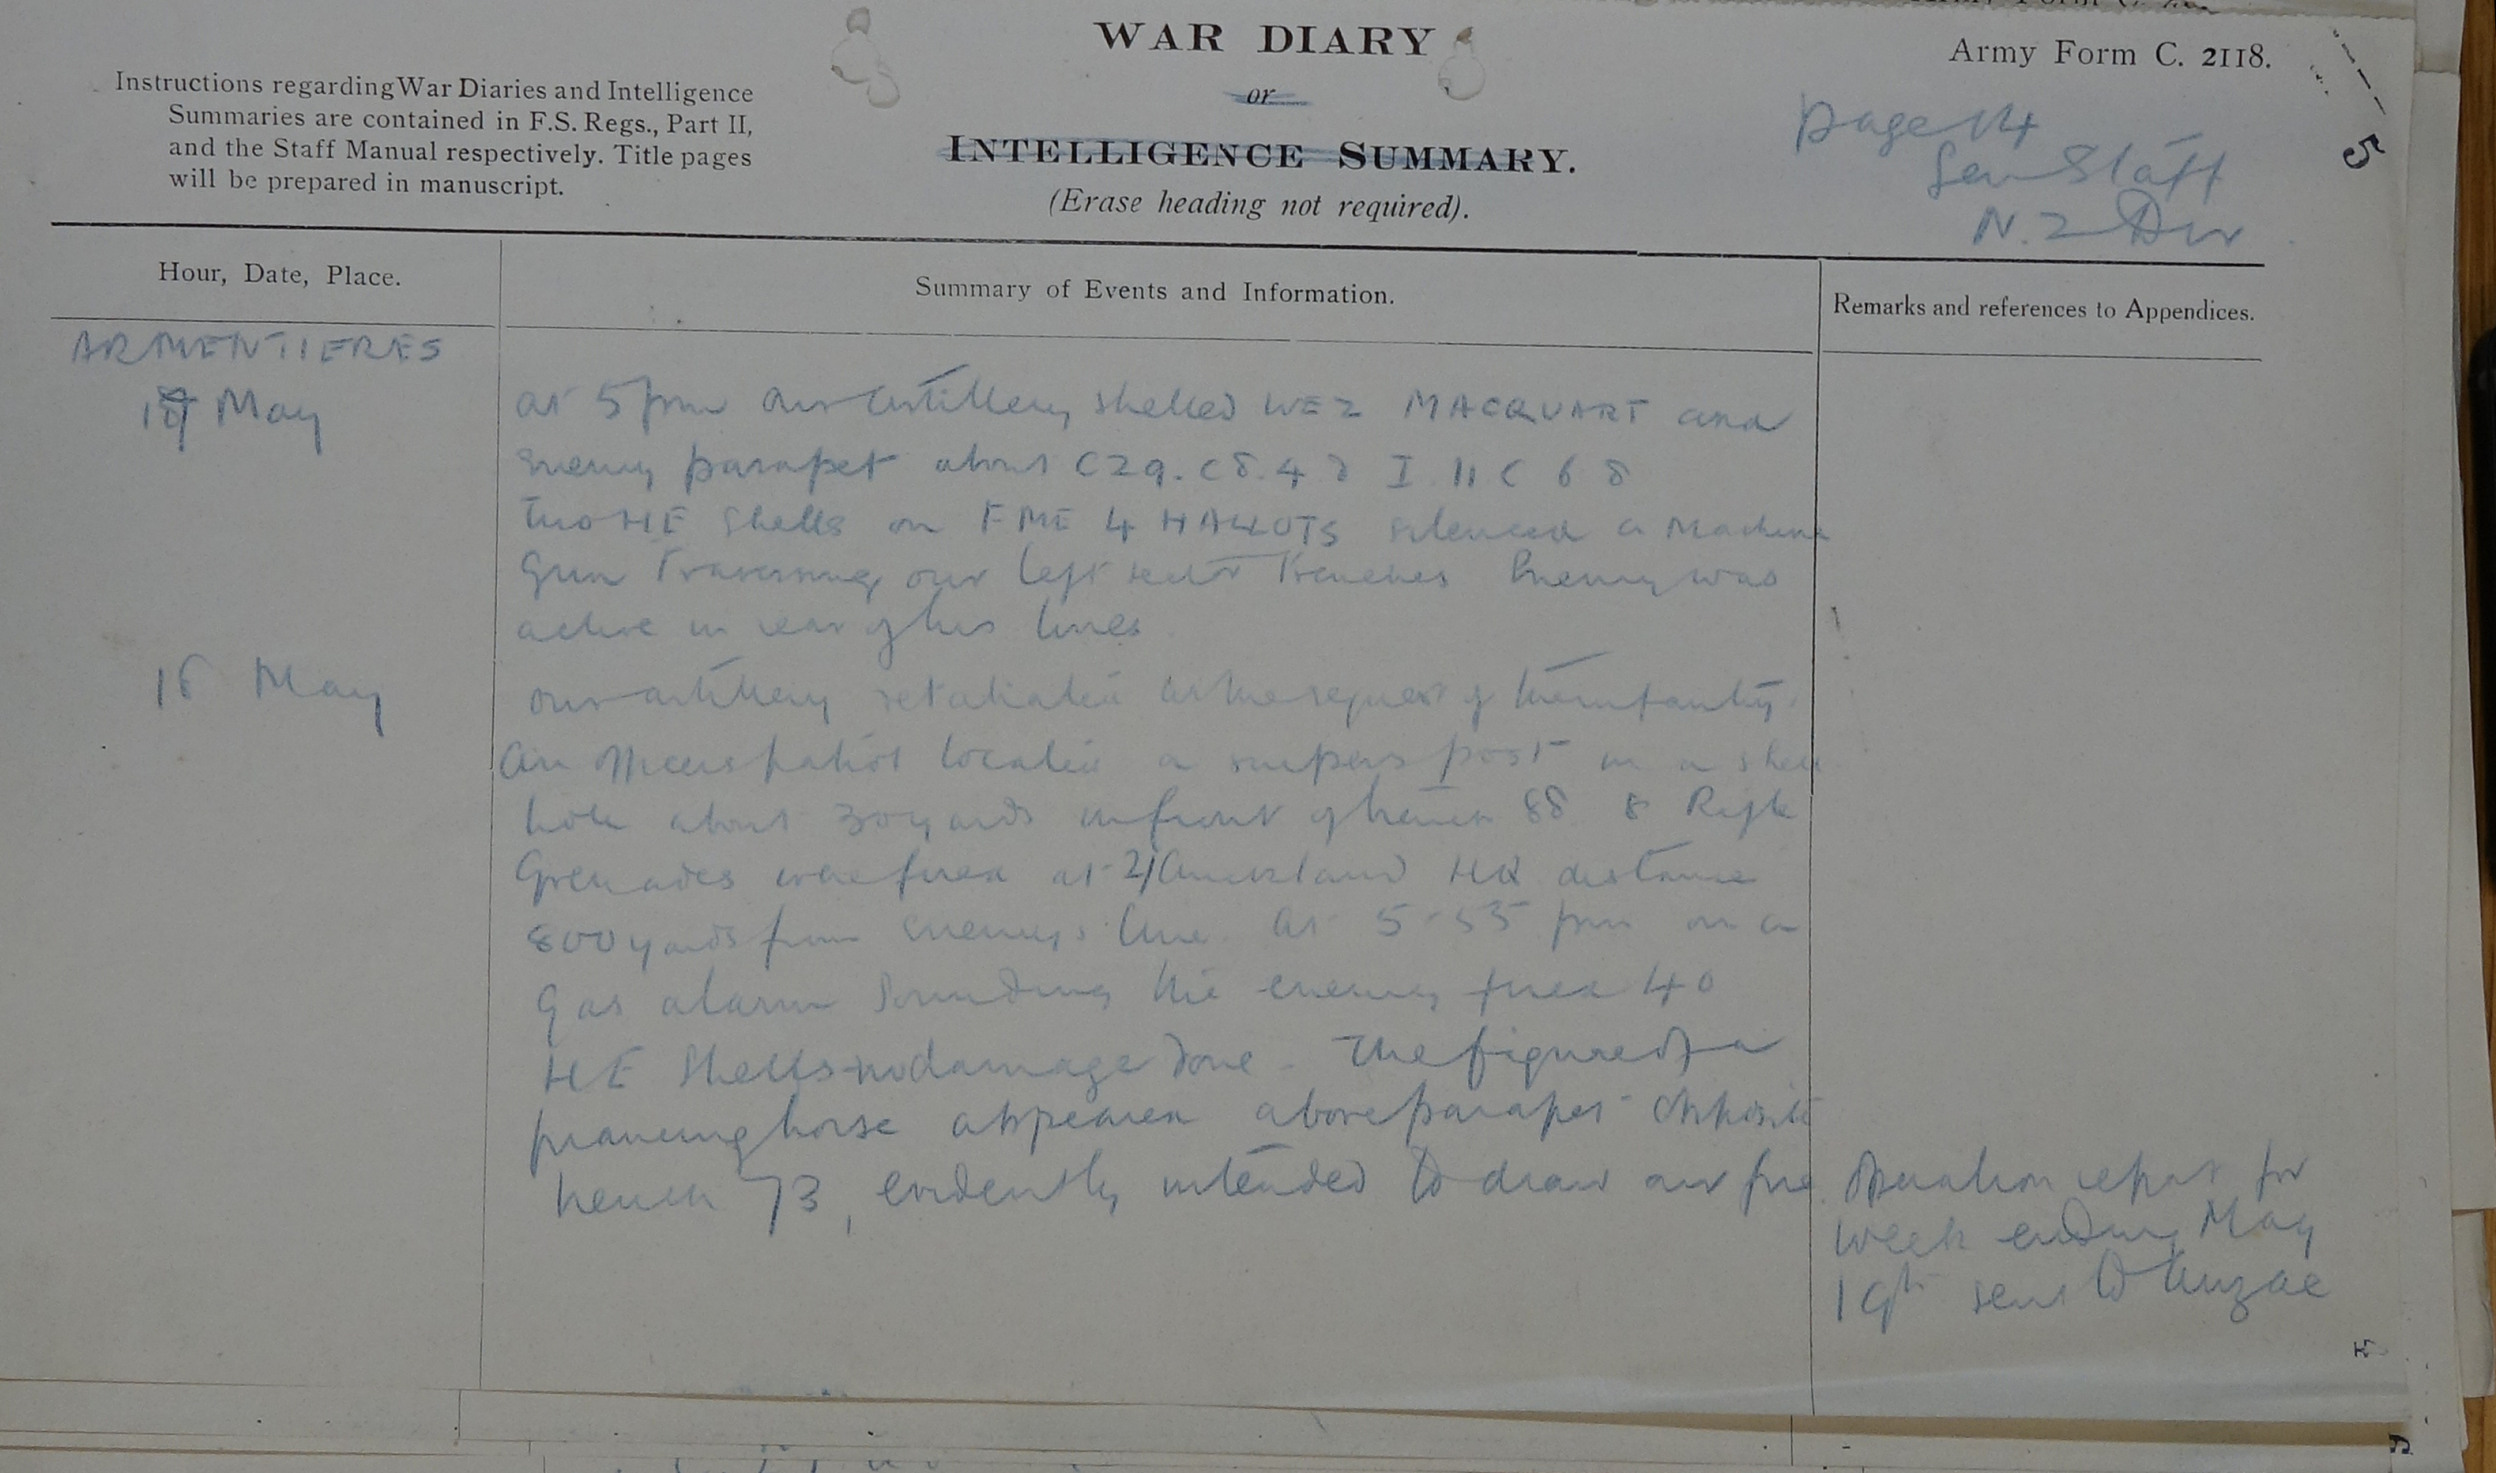 WAR DIARY
or
INTELLIGENCE SUMMARY.
(Erase heading not required).
Instructions regarding War Diaries and Intelligence
Summaries are contained in F.S. Regs., Part II,
and the Staff Manual respectively. Title pages
will be prepared in manuscript.
Army Form C. 2118.
page 14
Gen Staff
N.Z Div
5
Hour, Date, Place.
Summary of Events and Information.
Remarks and references to Appendices.
ARMENTIERES
May
at 5 pm our artillery shelled WEZ MACQUART and
enemy parapet about C29. C8.4 I 11 C 6 8
Two HE Shells on FME 4 HALLOTS silenced a Machine
Gun Traversing our left sector Trenches Enemy was
active in rear of his lines
18 May
our artillery retaliated at the request of the infantry.
An officers patrol located a snipers post in a shell
hole about 30 yards in front of trench 88 8 Rifle
Grenades were fired at 2/Auckland HQ distance
800 yards from enemy's line. At 5-55 pm on a
gas alarm sounding the enemy fired 40
HE Shells-no damage done. The figure of a
prancing horse appeared above parapet opposite
trench 73, evidently intended to draw our fire.
Operation report for
week ending May
19th sent to Anzac